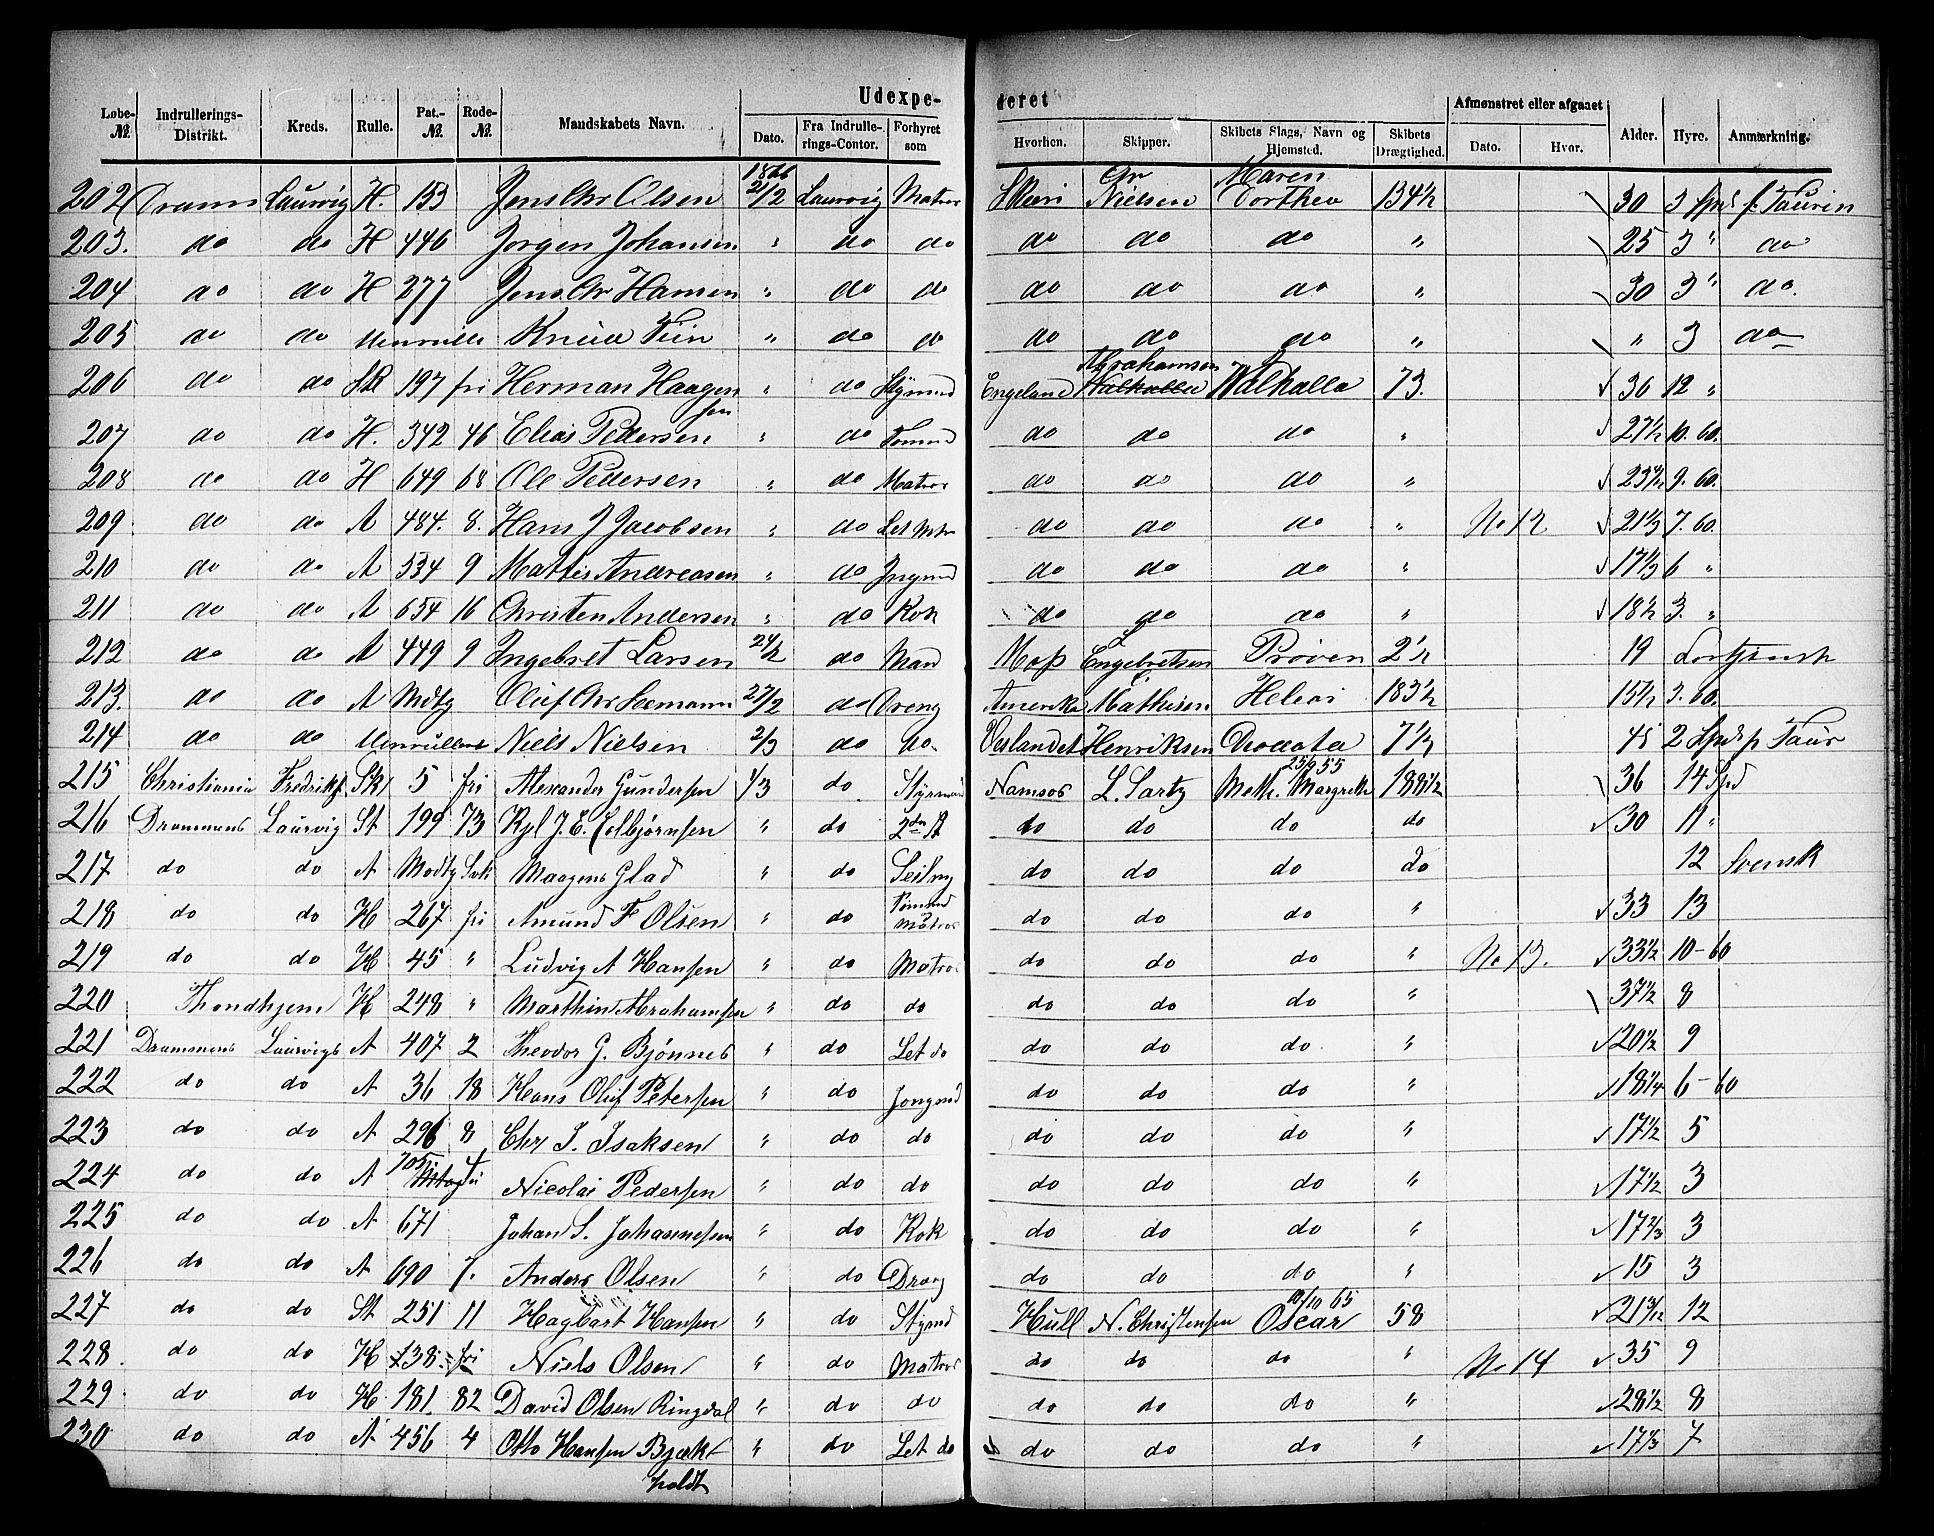 Udexpederet
Løbe-№. Indrullerings-Distrikt. Kreds. Rulle. Pat.-№. Rode-№. Mandskabets Navn. Dato. Fra Indrullerings-Contor. Forhyret som Hvorhen. Skipper. Skibets Slags, Navn og Hjemsted. Skibets Drægtighed. Afmønstret eller afgaaet Dato. Hvor. Alder. Hyre. Anmærkning.
1866
202 Dramm Laurvig H. 153 Jens Chr Olsen 21/2 Laurvig Matros Nielsen Maren Dorthea 134½ 30 3
203. do do H 446 Jørgen Johansen " do do do do do " 25 3 " do
204 do do H 277 Jens Chr Hansen " do do do do do " 30 3 " do.
205 do do Knud " do do do do do " " 3 do
206 do do St 197 fri Herman Haagensen " do Stymnd Engeland Abrahamsen Valhalla 73. 36 12 "
207 do do H. 342 46 Elias Pedersen " do Tømmd do do do " 27½ 10. 60.
208 do do H 649 68 Ole Pedersen " do Matros do do do " 23 9. 60.
209. do do A 484. 8. Hans J Jacobsen " do Let Mtr do do do " No 12 21⅓ 7. 60.
210 do do A 534 9 Mattis Andreasen " do Jngmd do do do " 17⅓ 6 "
211 do do A 654 16 Christen Andersen " do Kok do do do " 18½ 3. "
212 do do A 449 9 Ingebret Larsen 24/2 do Man Moss L Engebretsen Prøven 2½ 19
213. do do A Mdtg Oluf Chr Seemann 27/2 do Dreng Amerika Mathisen Helios 183½ 15½ 3. 60.
214 do do Niels Nielsen 2/3 do do. Henriksen 7½ 45 2
215 Christiania Fredriks. Sk 5 fri Alexander Gundersen 1/3 do Styrmand Namsos L. Sartz 25/9 55 Meth. Margreth 188½ 36 14 Spd
216 Drammens Laurvig St 199 73 J. E. Colbjørnsen " do 2den St do do do do 30 11 "
217 do do A Modtg Maagens Glad " do Seilmg do do do do 12 Svensk
218 do do H 267 fri Amund F Olsen " do Tømmd Matros do do do " 33 13
219 do do H 45 " Ludvig A Hansen " do Matros do do do " No 13. 33½ 10-60
220 Throndhjem H 248 " Marthin Abrahamsen " do do do do do " 37½ 8
221 Drammens Laurvigs A 407 2 Theodor G. Bjønnes " do Let do do do do " 20½ 9
222 do do A 36 18 Hans Oluf Petersen " do Jongmd do do do " 18¼ 6-60
223 do do A 296 8 Chr J. Isaksen " do do do do do " 17½ 5
224 do do A 705 Nicolai Pedersen " do do do do do " 17½ 3
225 do do A 671 Johan S. Johannessen " do Kok do do do " 17⅔ 3
226 do do A 690 7. Anders Olsen " do Dreng do do do " 15 3
227 do do St 251 11 Hagbart Hansen " do Stymd Hull N. Christensen 10/10 65 Oscar 58 21 3/12 12
228. do do H 138. fri Niels Olsen " do Matros do do do " No 14 35 9
229 do do H 181 82 David Olsen Ringdal " do do do do do " 28½ 8
230 do do A 456 4 Otto Hansen Bjækholdt " do Let do do do do " 17⅓ 7